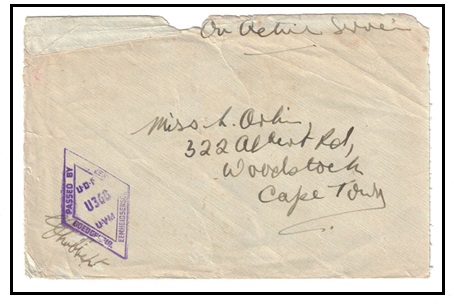 On Active Service
Miss L. Orlin,
322 Albert Rd,
Woodstock
Cape Town
PASSED BY
U.D.F
U368
U.V.M.
GOEDGEKEUR